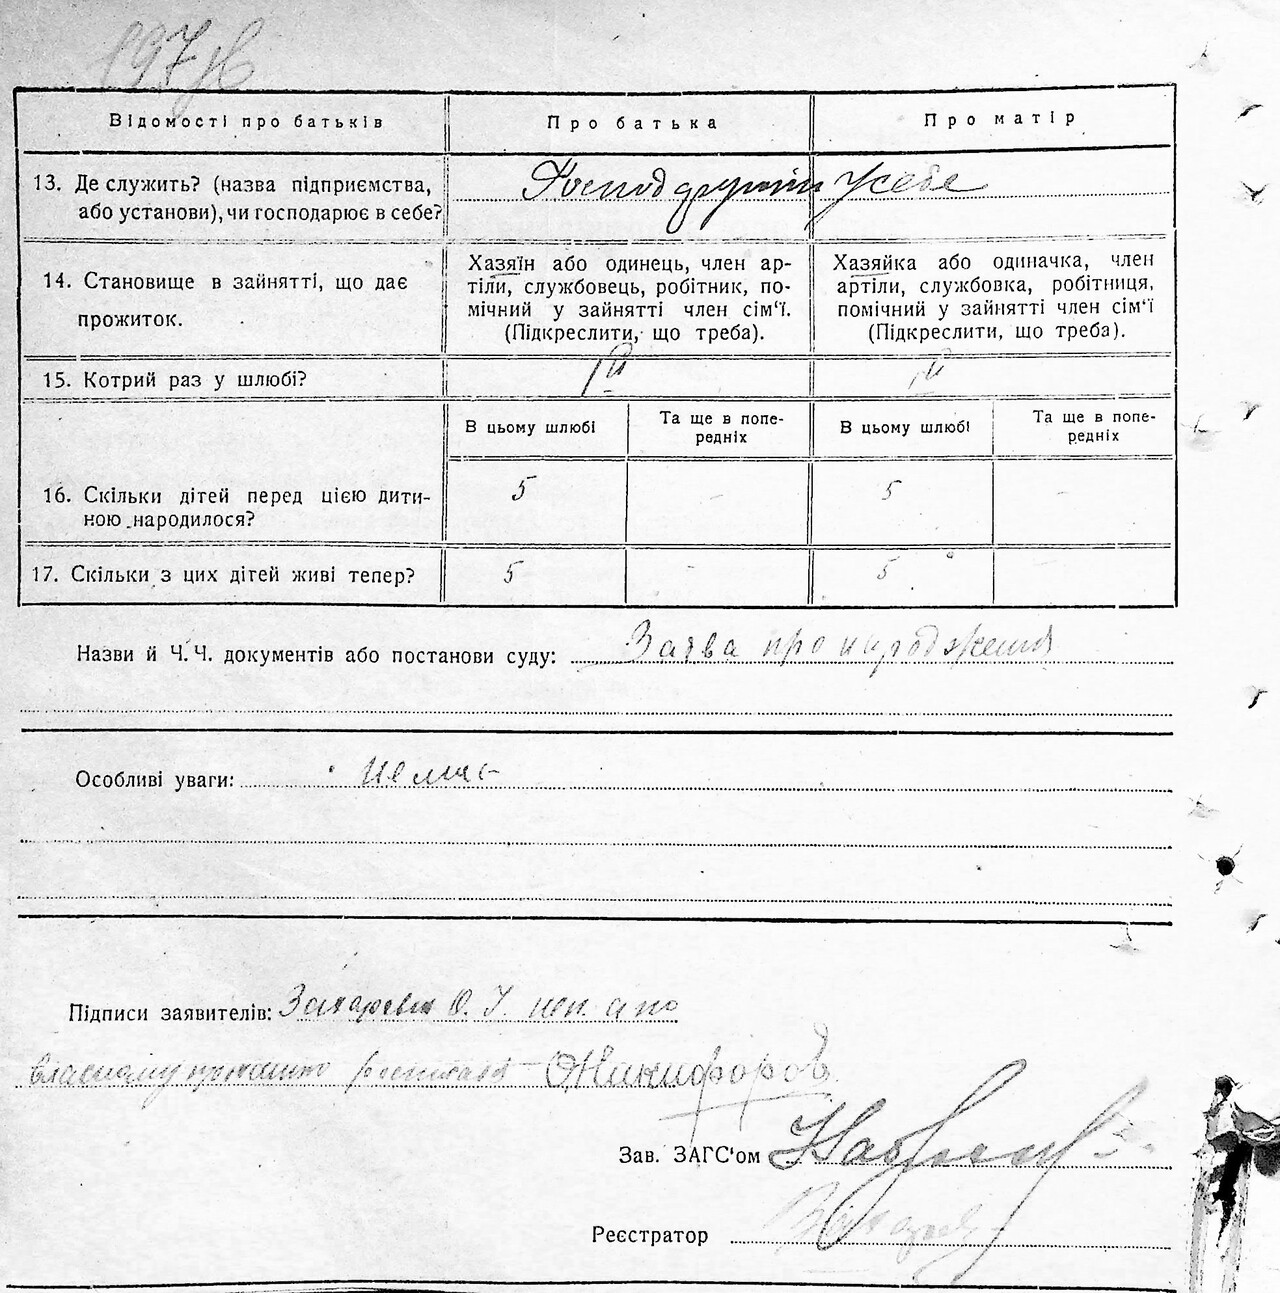 Відомості про батьків
Про батька
Про матір
13. Де служить? (назва підприємства,
або установи), чи господарює в себе?
у себе
14. Становище в зайнятті, що дає
прожиток.
Хазяїн або одинець, член ар-
тіли, службовець, робітник, по-
мічний у зайнятті член сім'ї.
(Підкреслити, що треба).
Хазяйка або одиначка, член
артіли, службовка, робітниця,
помічний у зайнятті член сім'ї
(Підкреслити, що треба).
15. Котрий раз у шлюбі?
В цьому шлюбі
Та ще в попе-
редніх
В цьому шлюбі
Та ще в попе-
редніх
16. Скільки дітей перед цією дити-
ною народилося?
5 - 5 -
17. Скільки з цих дітей живі тепер?
5 - 5
Назви й Ч. Ч. документів або постанови суду: Заява про народження
Особливі уваги: немає
Підписи заявителів: Захаревич О. І. неп. а по
власному прохані Никифоров
Зав. ЗАГС'ом
Реєстратор